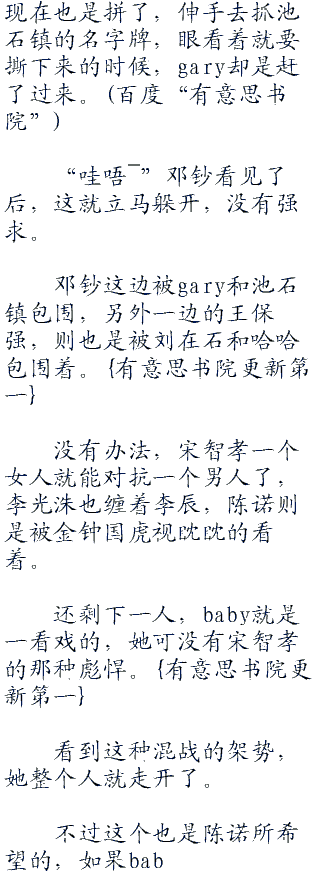 现在也是拼了，伸手去抓池
石镇的名字牌，眼看着就要
撕下来的时候，gary却是赶
了过来。(百度“有意思书
院”)
“哇唔¯”邓钞看见了
后，这就立马躲开，没有强
求。
邓钞这边被gary和池石
镇包围，另外一边的王保
强，则也是被刘在石和哈哈
包围着。{有意思书院更新第
一}
没有办法，宋智孝一个
女人就能对抗一个男人了，
李光洙也缠着李辰，陈诺则
是被金钟国虎视眈眈的看
着。
还剩下一人，baby就是
一看戏的，她可没有宋智孝
的那种彪悍。{有意思书院更
新第一}
看到这种混战的架势，
她整个人就走开了。
不过这个也是陈诺所希
望的，如果bab